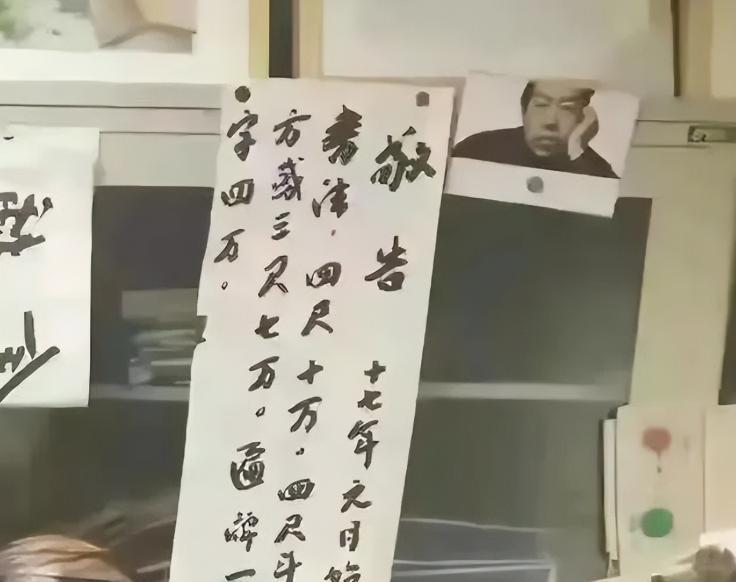 敬告 十七年元日始
书法，四尺十万。四尺斗
方或三尺七万。匾碑一
字四万。